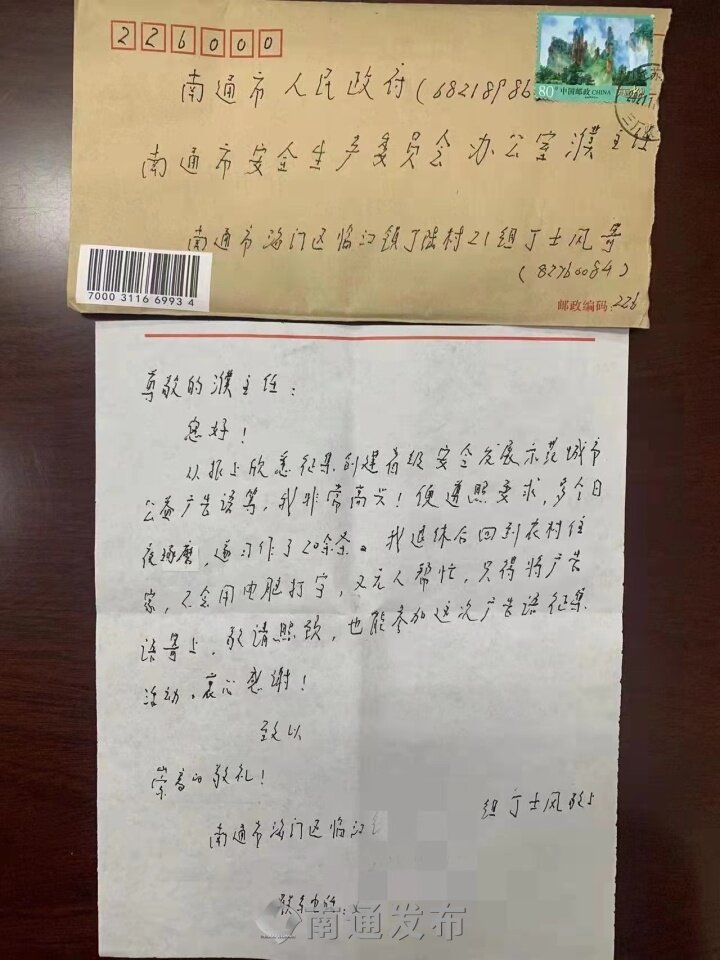 226000
南通市人民政府(68218986
80分 中国邮政 CHINA
南通市安全生产委员会办公室濮主任
南通市海门区临江镇丁陆村21组丁士风寄
(82760084)
7000 3116 6993 4
邮政编码:226
尊敬的濮主任:
您好!
从报上欣悉征集创建省级安全发展示范城市
公益广告语等,我非常高兴!便遵照要求,多个日
夜琢磨,遂习作了20余条。我退休后回到农村住
家,不会用电脑打字,又无人帮忙,只得将广告
语寄上,敬请照顾,也能参加这次广告语征集
活动。衷心感谢!
致以
崇高的敬礼!
组丁士风敬上
南通市海门区临江
联系电话:
南通发布